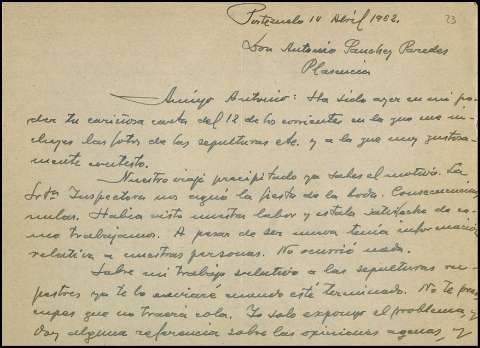 Portezuelo 14 Abril 1962.
23
Don Antonio Sanchez Paredes
Plasencia
Amigo Antonio: Ha sido ayer en mi po-
der tu cariñosa carta del 12 de los corrientes en la que me in-
cluyes las fotos de las sepulturas etc. y a la que muy gustosa-
mente contesto.
Nuestro viaje precipitado ya sabes el motivo. La
Srtª Inspectora nos aguó la fiesta de la boda. Consecuencias
nulas. Habia visto nuestra labor y estaba satisfecha de co-
mo trabajamos. A pesar de ser nueva tenia informacion
relativa a nuestras personas. No ocurrió nada.
Sobre mi trabajo relativo a las sepulturas ru-
pestres ya te lo enviaré cuando esté terminado. No te preo-
cupes que no traerá cola. Yo solo expongo el problema y
doy alguna referencia sobre las opiniones agenas, y